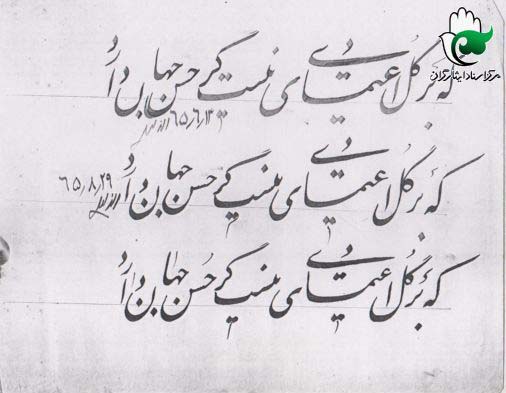 مرکز اسناد ایثارگران
که بر گل اعتمادی نیست گر حسن جهان دارد
که بر گل اعتمادی نیست گر حسن جهان دارد
۶۵٫۸٫۲۹
که بر گل اعتمادی نیست گر حسن جهان دارد